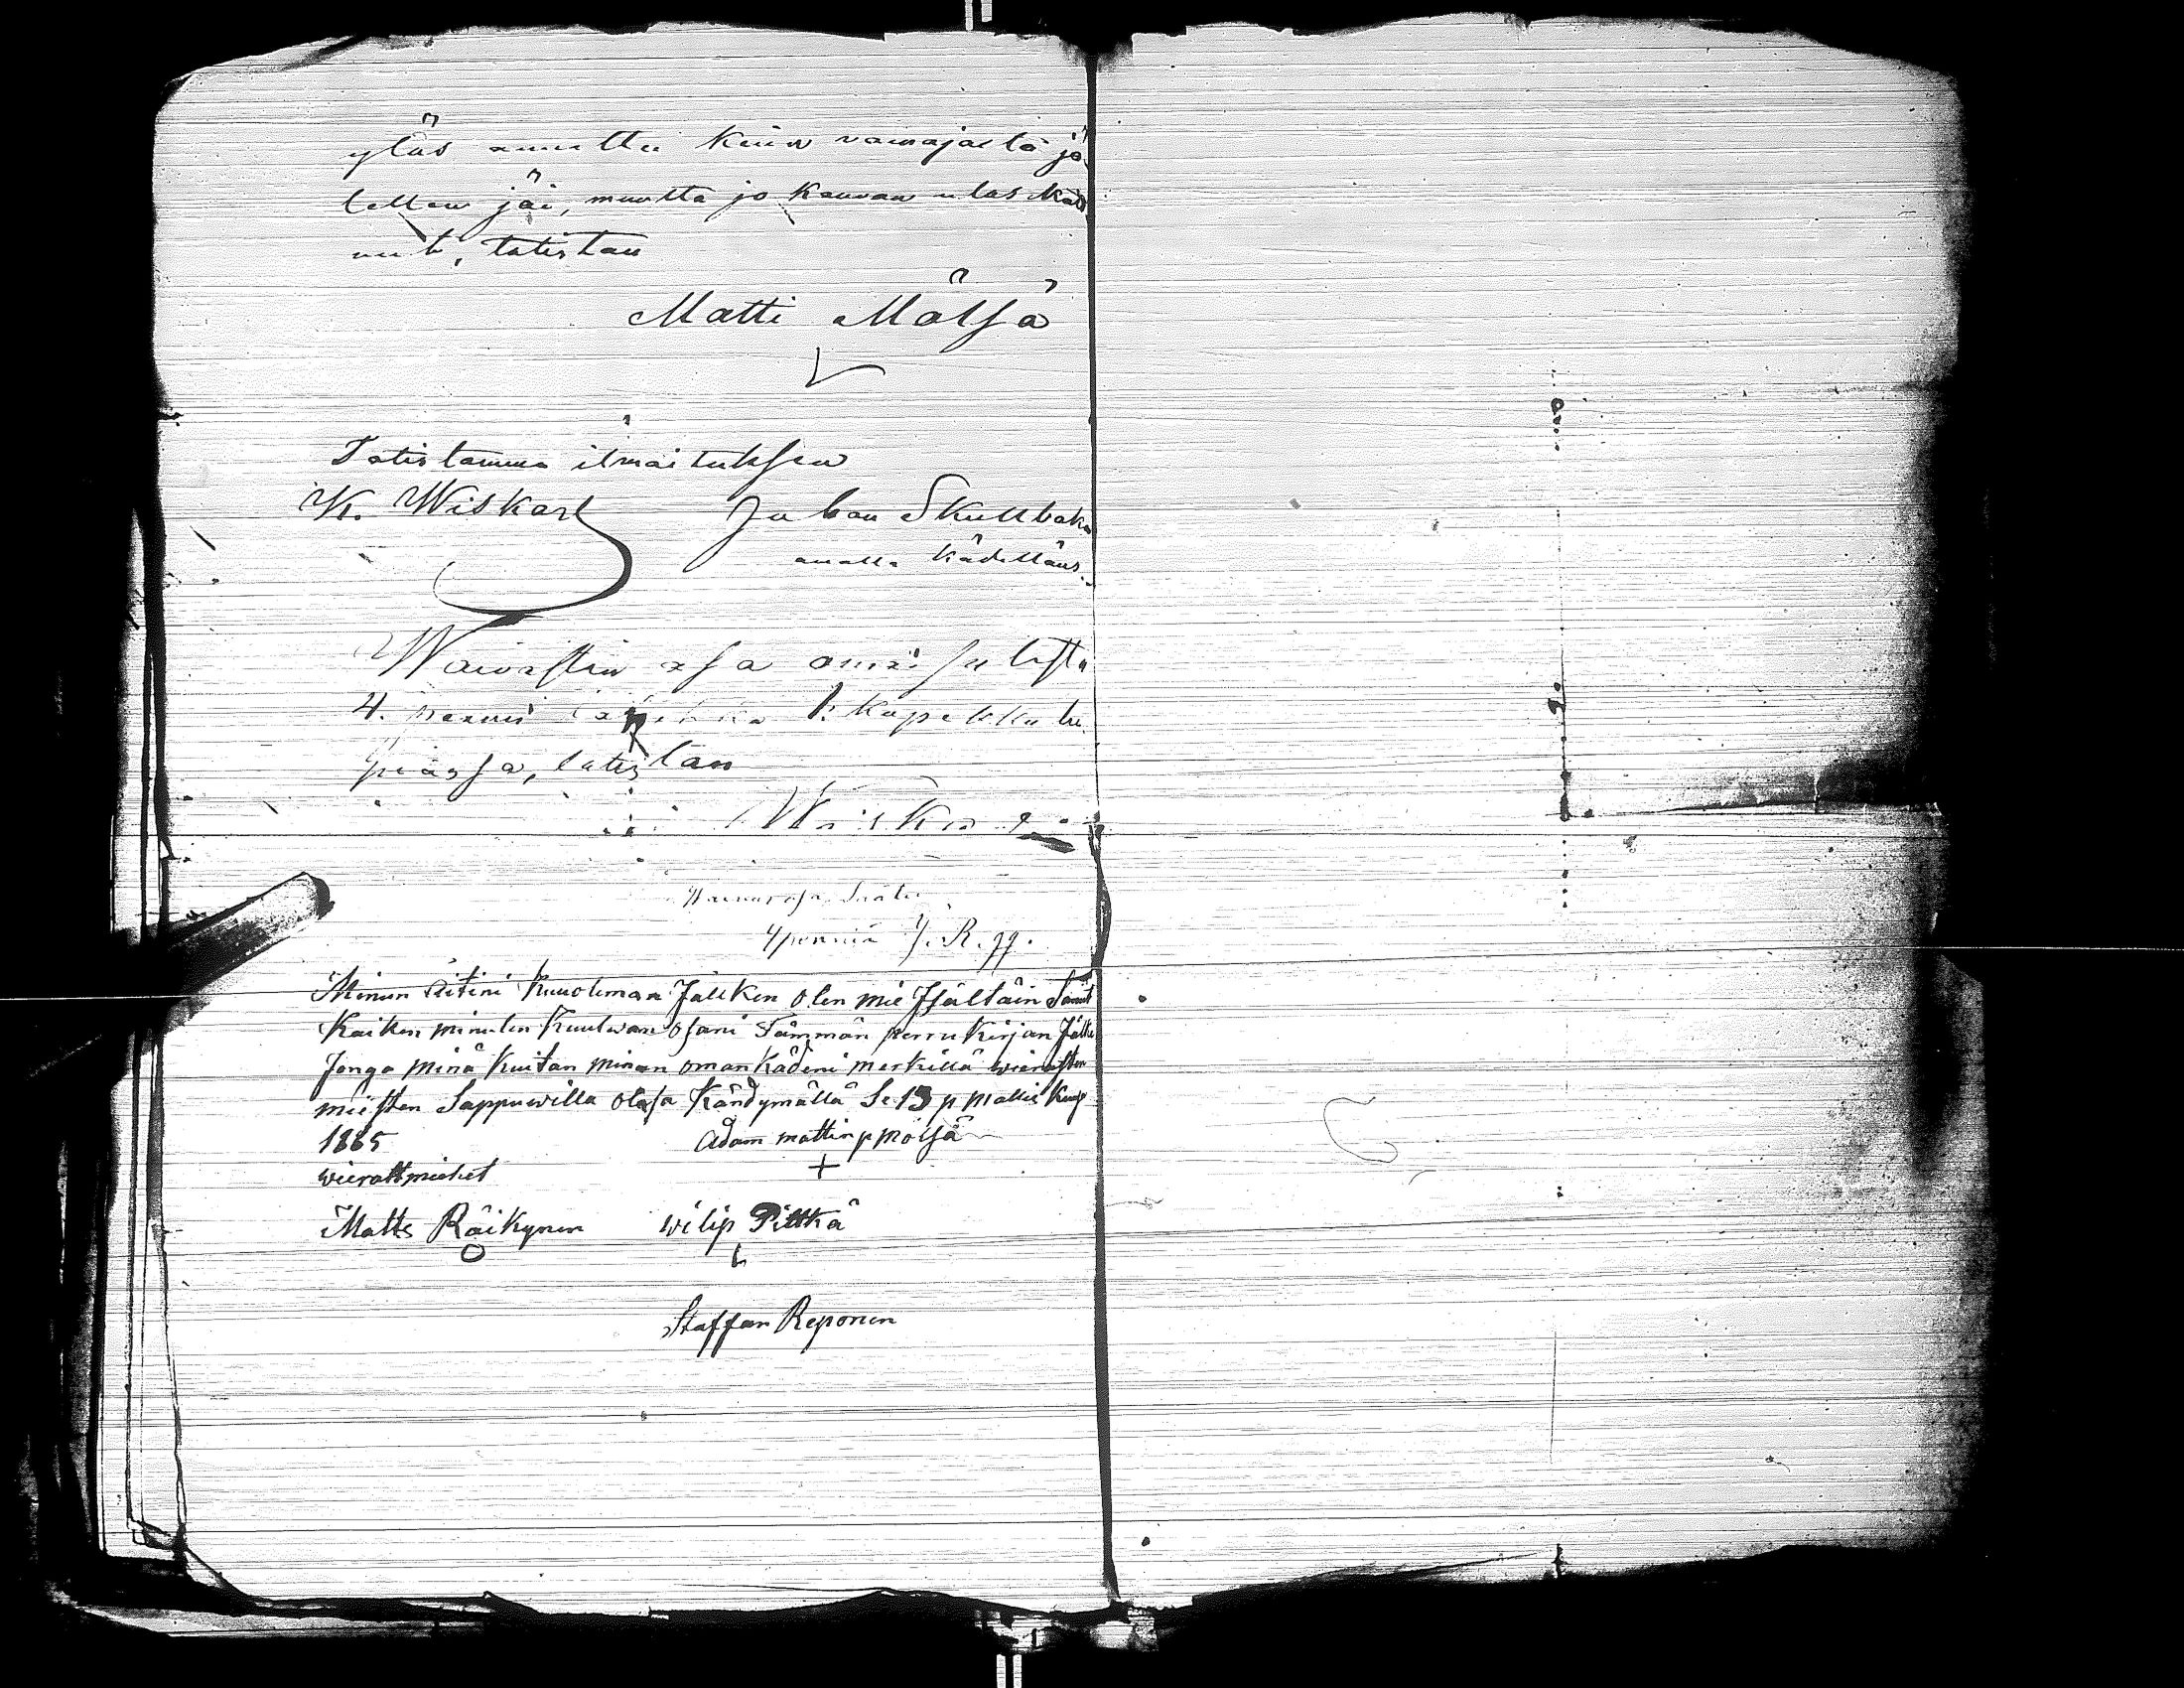 ylös annettu kuin vainajasta jä
lellen jäi, mutta jo kauvan ulos
nut, totistan
Matti Mölsä
Totistamma ilmaituksen
K. Wiskar Juhan Skullbaka
omalla kädelläns.
Waivastin osa on
4. penni kopekka
totistan
Wiskar
Waivas osa Saatu
4 penniä J. R. gg.
Minun äitini kuuoleman Jälken olen mie Jsältäin Sanut
Kaiken minulen kuulwan osani Tämmän perru kirjan Jälke
Jonga minä kuitan minun oman kädeni merkillä wierasten
miesten Sappuwilla olesa Kändymällä Se 13 p mallis kuup
1865 Adam mattin p mölsä
+
wierattmiehet
Matts Räikynen wilip Pitkä
Staffan Reponen